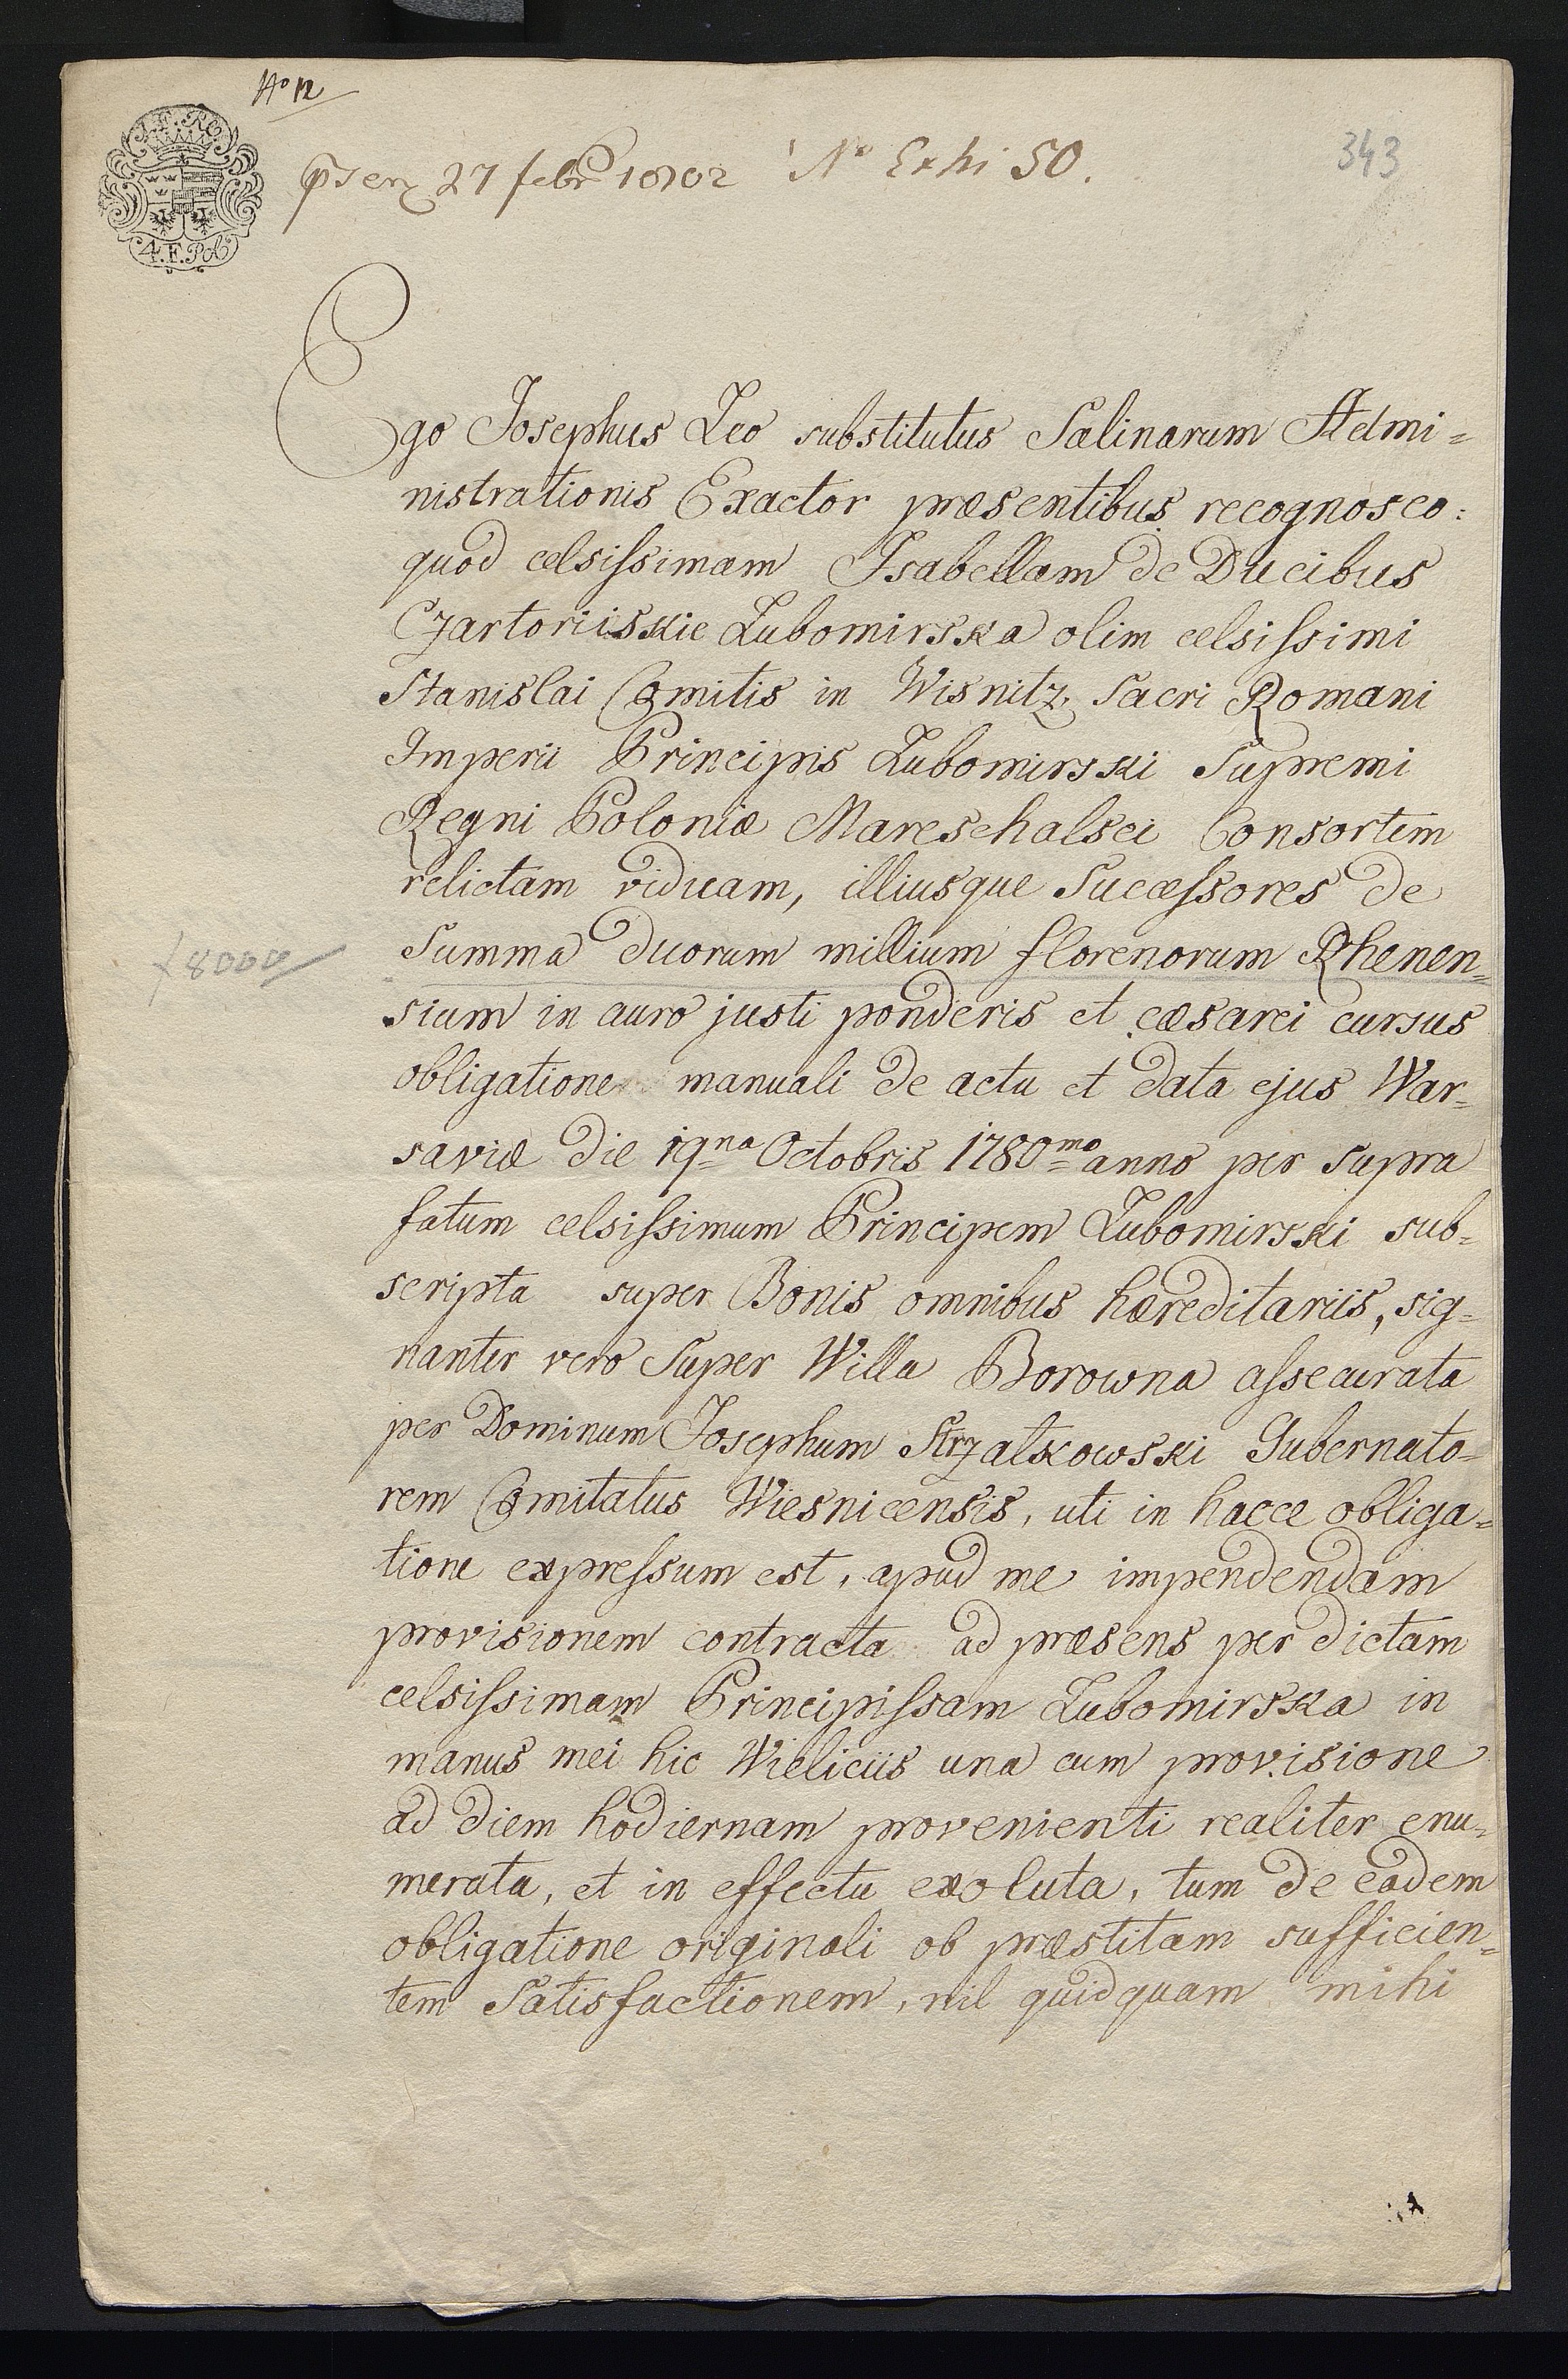 No 12
I. F. RO.
4. F. PA
praesen 27 febr 1802 No Exhi 50.
343
Ego Josephus Leo substitutus Salinarum Admi=
nistrationis Exactor præsentibus recognosco:
quod celsissimam Isabellam de Ducibus
Czartoriiskie Lubomirska olim celsissimi
Stanislai Comitis in Wisnitz, Sacri Romani
Imperii Principis Lubomirski Supremi
Regni Poloniæ Mareschalsci Consortem
relictam viduam, illiusque Successores de
Summa duorum millium florenorum Rhenen=
sium in auro justi ponderis et cæsarei cursus
obligatione manuali de actu et data ejus War=
saviæ die 19na Octobris 1780mo anno per supra
fatum celsissimum Principem Lubomirski sub=
scripta super Bonis omnibus hæreditariis, sig=
nanter vero Super Willa Borowna assecurata
per Dominum Josephum Strzalkowski Gubernato=
rem Comitatus Wiesnicensis, uti in hacce obliga=
tione expressum est, apud me impendendam
provisionem contracta ad præsens per dictam
celsissimam Principissam Lubomirska in
manus mei hic Wieliciis una cum provisione
ad diem hodiernam provenienti realiter enu=
merata, et in effectu exoluta, tum de eadem
obligatione originali ob præstitam sufficien=
tem Satisfactionem, nil quidquam mihi
f 8000